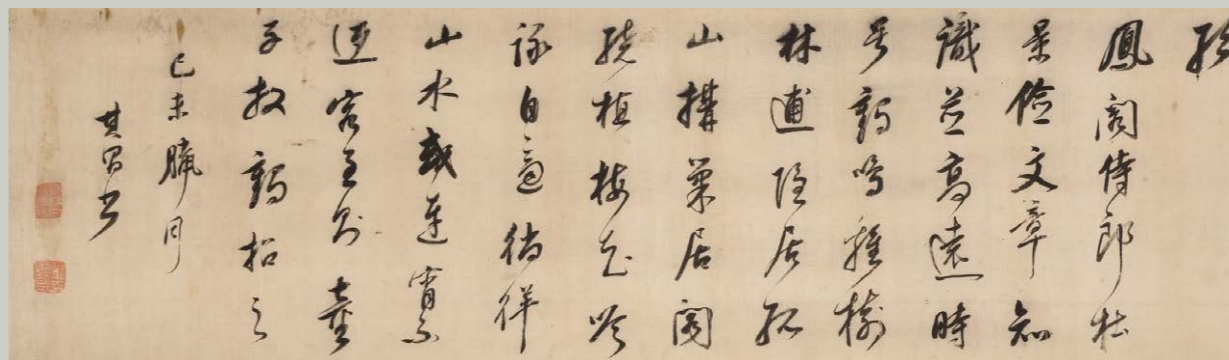 鳳閣侍郎杜
景儉文章知
識並高遠時
号鶴鳴雞樹
林逋隱居孤
山構巢居閣
繞植梅花吟
詠自適徜徉
山水或連宵不
返客至則童
子放鶴招之
己未臘月
其昌書